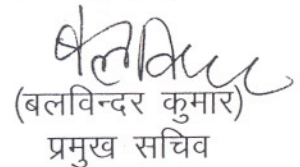 (बलविन्दर कुमार)
प्रमुख सचिव